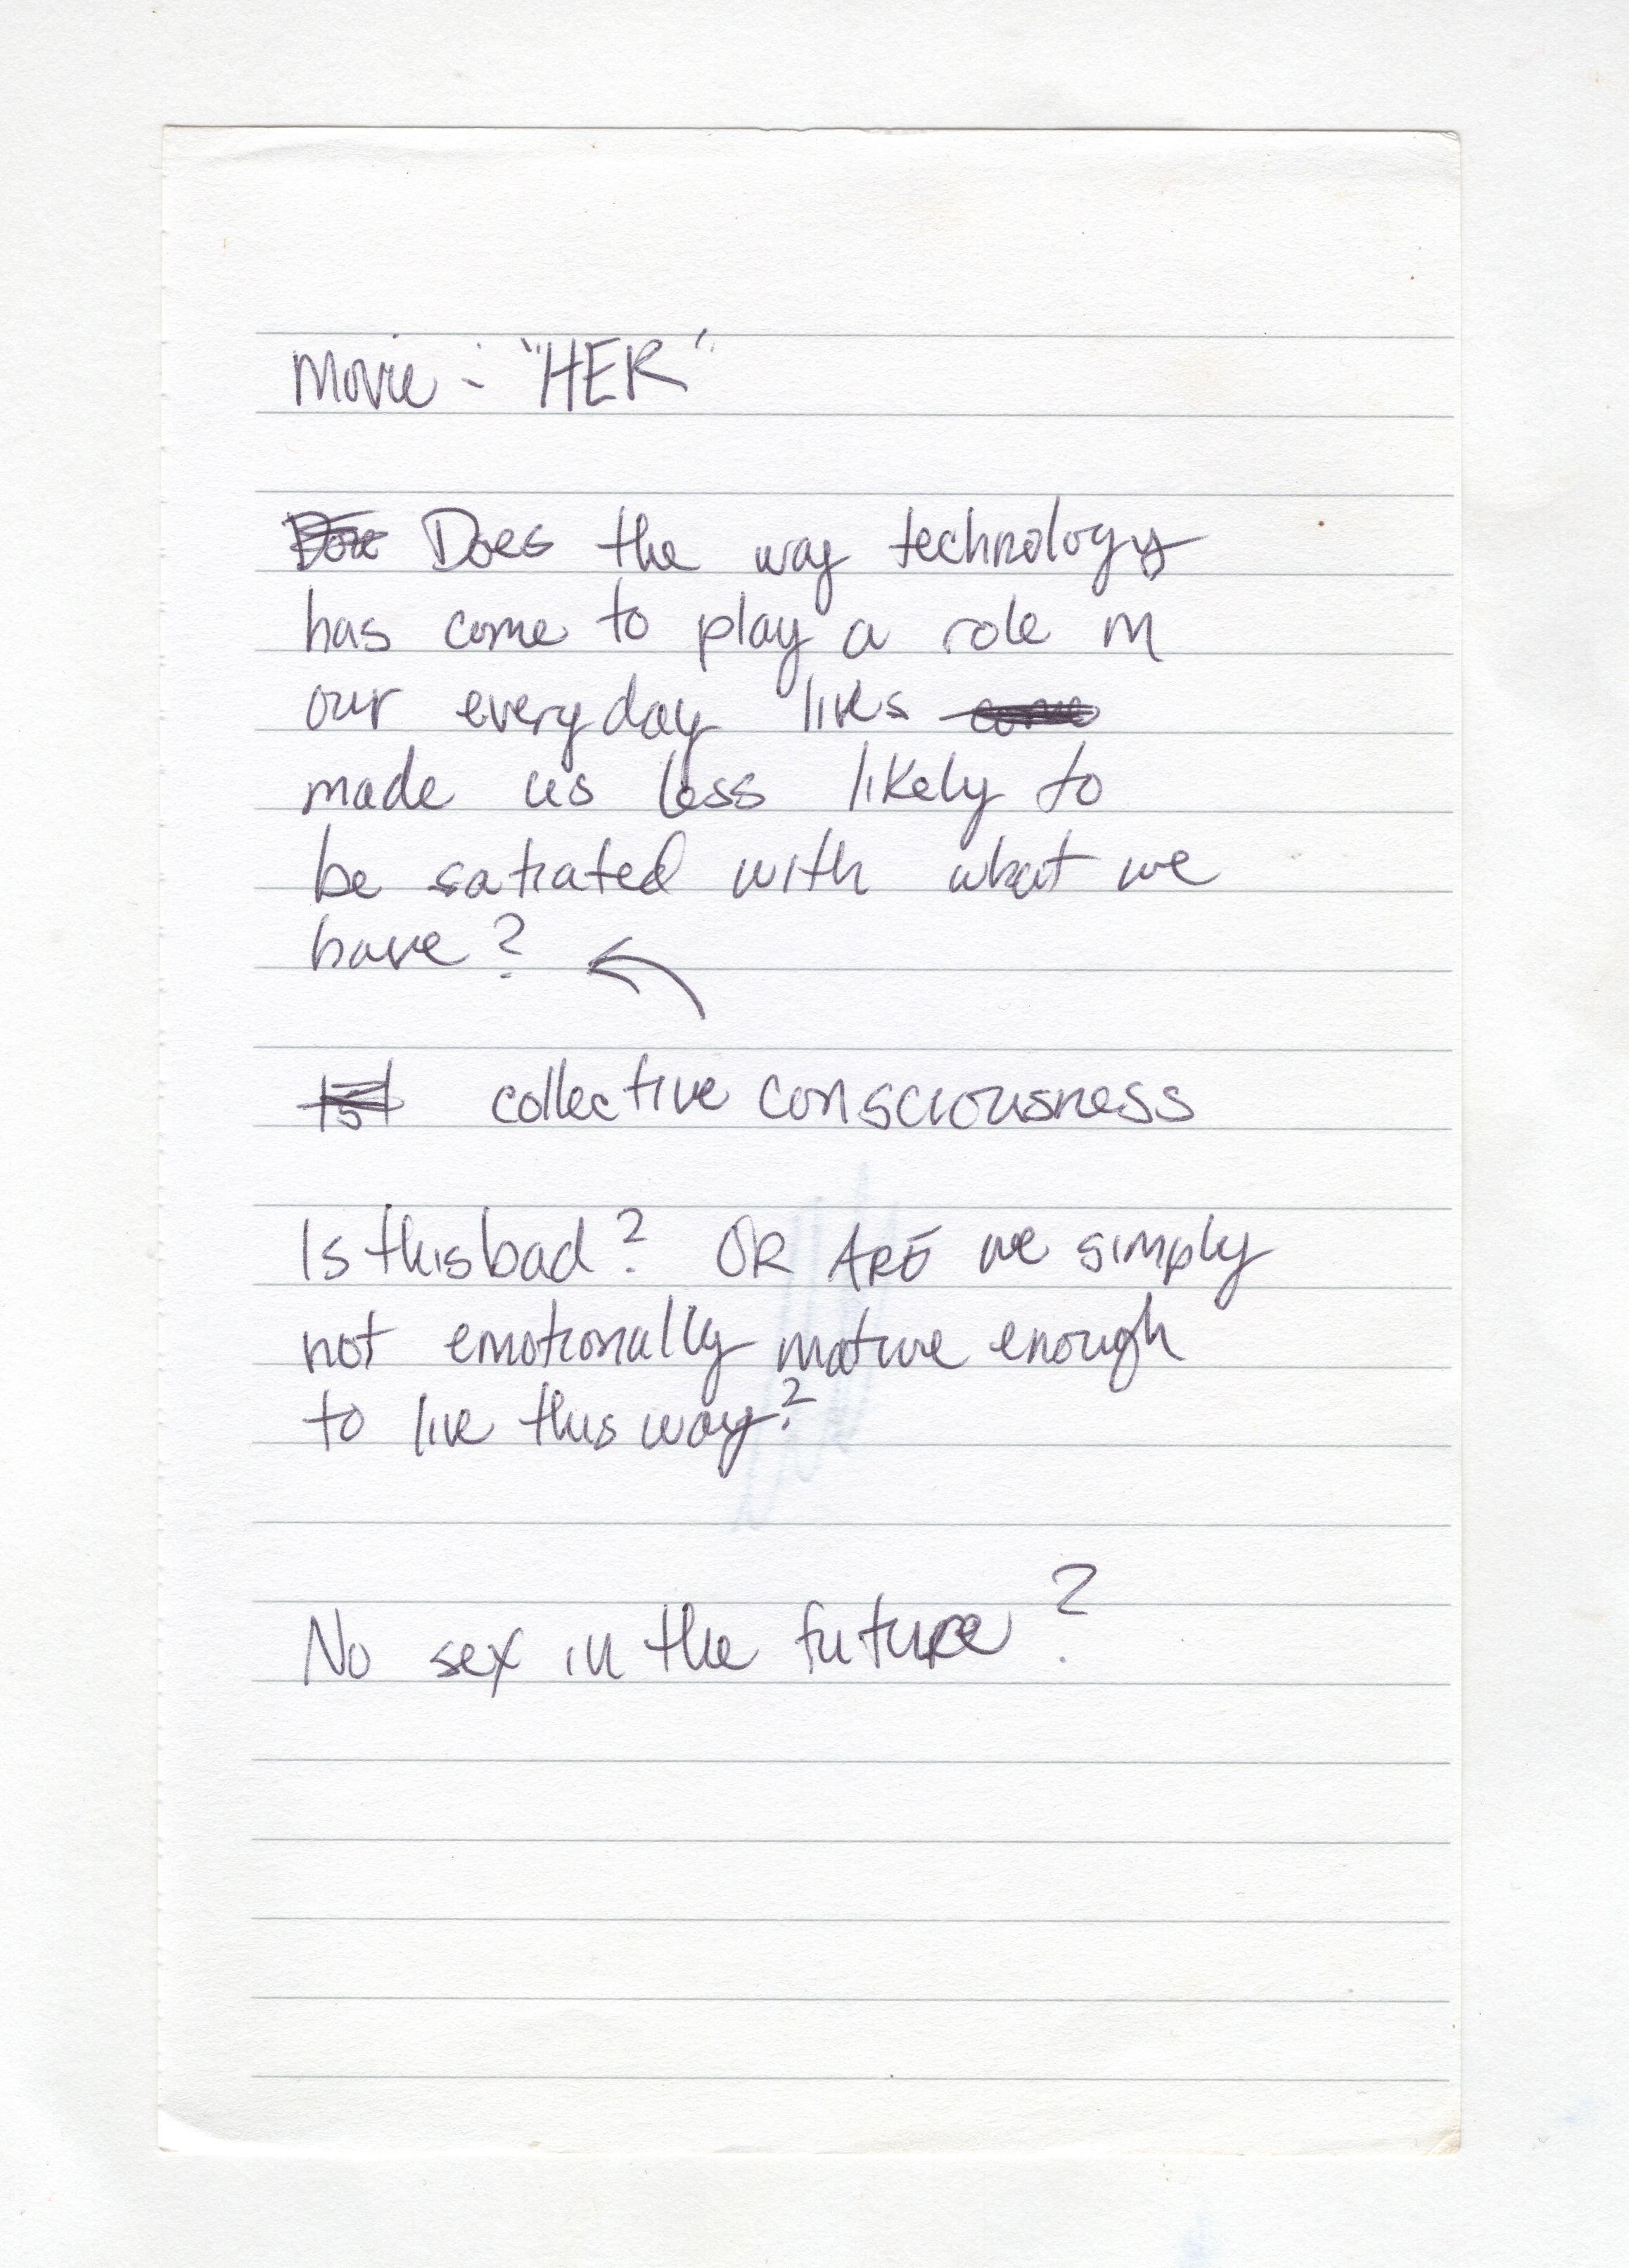 Movie: "HER"
Does the way technology
has come to play a role in
our everyday lives
made us less likely to
be satiated with what we
have?
collective consciousness
Is this bad? OR ARE we simply
not emotionally mature enough
to live this way?
No sex in the future?